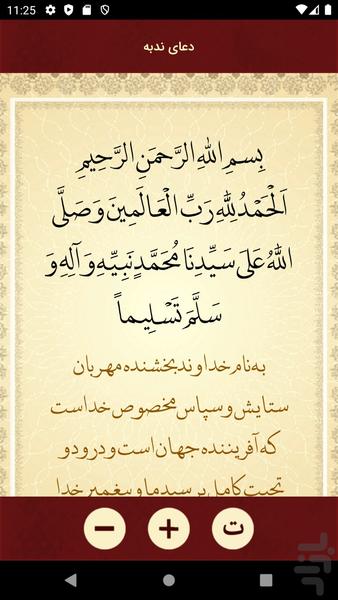 11:25
دعای ندبه
بِسمِ اللهِ الرَّحمَنِ الرَّحِیمِ
اَلْحَمْدُلِلّٰهِ رَبِّ الْعَالَمِینَ وَ صَلَّی
اللهُ عَلَی سَیِّدِنَا مُحَمَّدٍ نَبِیِّهِ وَ آلِهِ وَ
سَلَّمَ تَسْلِیماً
به نام خداوند بخشنده مهربان
ستایش و سپاس مخصوص خداست
که آفریننده جهان است و درود و
تحیت کامل بر سید ما و پیغمبر خدا
− + ت
بازار